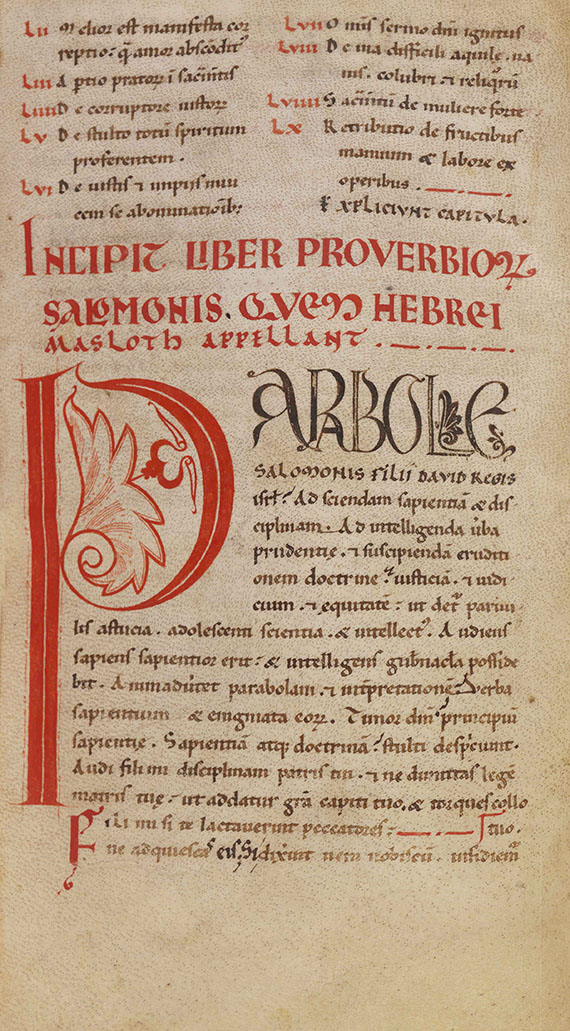 LII Melior est manifesta cor
reptio: q̄ amor abscōdit᷒
LIII A p̄tio prator̄ ī sac̄m̄tis
LIIII De corruptore uistor̄
LV De stulto totū spiritum
proferentem.
LVI De iustis ⁊ impiis inui
cem se abominatiōib;
LVII Omīs sermo dn̄i ignitus
LVIII De uia difficili aquile. na
uis. colubri. ⁊ reliq̄rū
LVIIII Sac̄m̄tū de muliere forte
LX Retributio de fructibus
manuum & labore ex
operibus.
EXPLICIUNT CAPITULA.
INCIPIT LIBER PROVERBIOꝜ
SALOMONIS. QUEM HEBREI
MASLOTH APPELLANT.
PARABOLE
SALOMONIS FILII DAVID REGIS
isrl̄. Ad sciendam sapientiā & dis
ciplinam. Ad intelligenda ūba
prudentię. ⁊ suscipienda eruditi
onem doctrine. iusticiā. ⁊ iudi
cium. ⁊ equitatē: ut det᷒ paruu
lis astucia. adolescenti scientia. & intellect᷒. Audiens
sapiens sapientior erit: & intelligens gub̄nacl̄a posside
bit. Animadūtet parabolam. ⁊ int̄pretationē. Verba
sapientium & enigmata eoꝝ. Timor dn̄i principiū
sapientię. Sapientiā atq; doctrinā stulti despiciunt.
Audi fili mi disciplinam patris tui. ⁊ ne dimittas legē
matris tuę: ut addatur gr̄a capiti tuo. & torques collo
tuo.
Fili mi si te lactauerint peccatores:
ne adquiescas eis. Si dixīnt ueni nobiscū. insidiem᷒